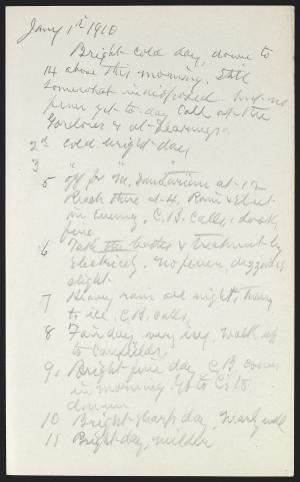 Jany 1st 1910
Bright cold day, down to
14 above this morning. Still
somewhat indisposed but no
fever yet to-day Call at the
Gordons & at Learnings.
2d cold bright day
3 " " "
5 off for M. Sanitarium at 12
Reach there at 4. Rain & sleet
in evening, C.B. calls, looks
fine
6 Take the & treatment by
Electricity. No fever, dizziness
slight
7 Heavy rain all night, turns
to ice, C.B. calls,
8 Fair day, very icy, walk up
to
9. Bright fine day C.B. comes
in morning Go to C's to
dinner
10 Bright sharp day, nearly well
11 Bright day, milder